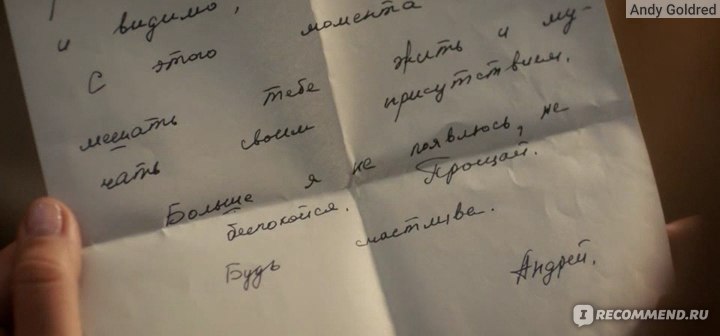 Andy Goldred
и видимо,
С этого момента
мешать тебе жить и му-
чать своим присутствием.
Больше я не появлюсь, не
беспокойся. Прощай.
Будь счастлива.
Андрей.
IRECOMMEND.RU